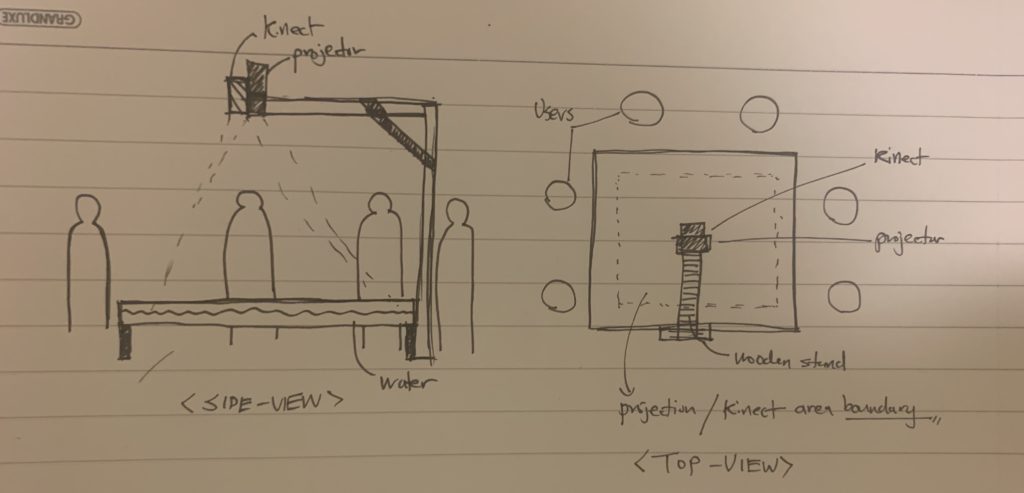 GRANDLUXE
Kinect
projector
water
< SIDE-VIEW >
Users
Kinect
projector
wooden stand
projection / Kinect area boundary
< TOP-VIEW >